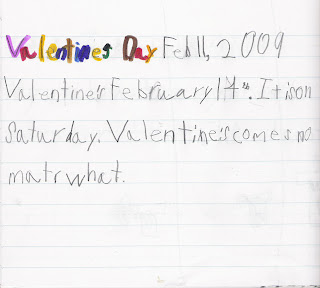 Valentines Day Feb 11, 2009
Valentine's February 14th. It is on
Saturday. Valentine's comes no
matr what.